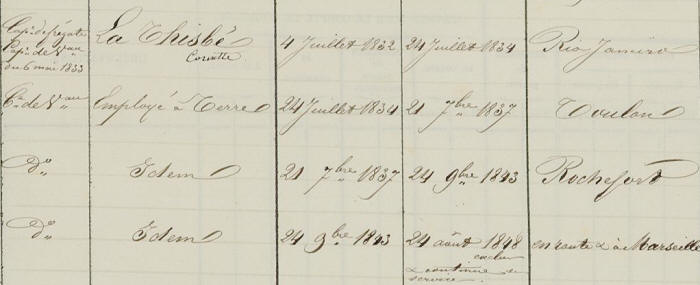 Cap. de frégate La Thisbé 4 Juillet 1832 24 Juillet 1834 Rio Janeiro
Cap. de Vau Corvette
du 6 mai 1833
Cne de Vau Employé à Terre 24 Juillet 1834 21 7bre 1837 Toulon
Do Idem 21 7bre 1837 24 9bre 1843 Rochefort
Do Idem 24 9bre 1843 24 août 1848 en route à Marseille
continue
service